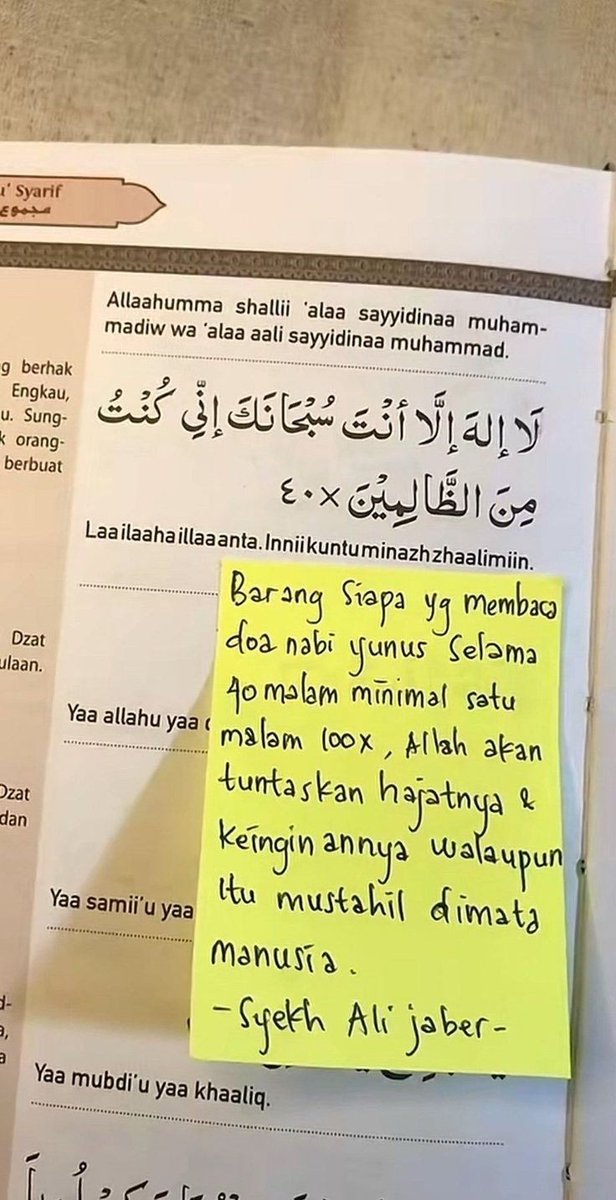 u' Syarif
مجموع
Allaahumma shallii 'alaa sayyidinaa muham-
madiw wa 'alaa aali sayyidinaa muhammad.
g berhak
Engkau,
u. Sung-
k orang-
berbuat
لَا إِلهَ إِلَّا أَنْتَ سُبْحَانَكَ إِنِّي كُنْتُ
مِنَ الظَّالِمِيْنَ ×٤٠
Laa ilaaha illaa anta. Innii kuntu minazh zhaalimiin.
Dzat
ulaan.
Yaa allahu yaa
Dzat
dan
Yaa samii'u yaa
d-
a,
a
Yaa mubdi'u yaa khaaliq.
Barang Siapa yg membaca
doa nabi yunus selama
40 malam minimal satu
malam 100x, Allah akan
tuntaskan hajatnya &
keinginannya walaupun
itu mustahil dimata
manusia.
-Syekh Ali jaber-